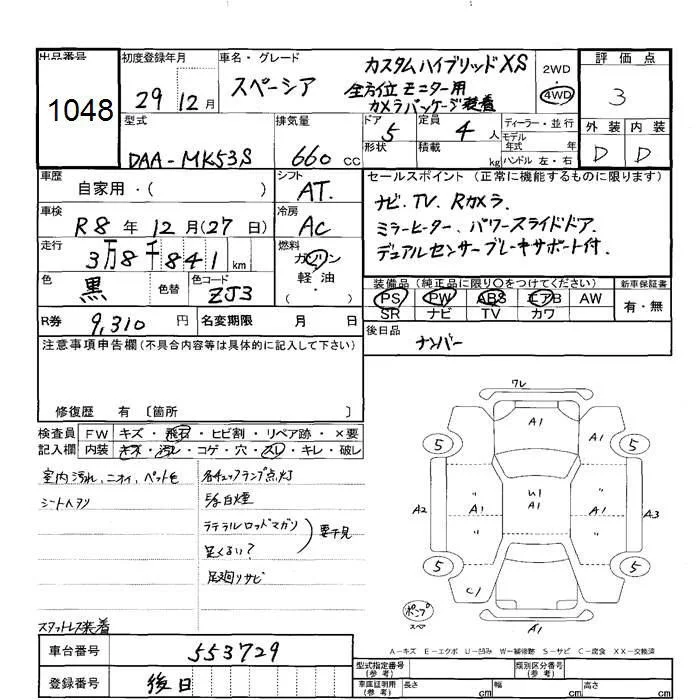 出品番号 1048
初度登録年月 29年12月
車名・グレード スペーシア カスタムハイブリッドXS
全方位モニター用
カメラパッケージ装着
2WD・4WD
評価点 3
外装 D 内装 D
型式 DAA-MK53S
排気量 660 cc
ドア 5 形状
定員 4人 積載 kg
ディーラー・並行
モデル年式 年式
ハンドル 左・右
車歴 自家用・( )
シフト AT.
車検 R8年12月(27日)
冷房 AC
走行 3万8千841km
燃料 ガソリン・軽油・( )
色 黒 色替 色コード ZJ3
R券 9,310円
名変期限 月 日
セールスポイント(正常に機能するものに限ります)
ナビ.TV.Rカメラ.
ミラーヒーター、パワースライドドア.
デュアルセンサーブレーキサポート付.
装備品(純正品に限り○をつけてください)
新車保証書 有・無
PS PW ABS エアB AW
SR ナビ TV カワ
後日品 ナンバー
注意事項申告欄(不具合内容等は具体的に記入して下さい)
修復歴 有〔箇所 〕
検査員記入欄
FW キズ・飛石・ヒビ割・リペア跡・×要
内装 キズ・汚レ・コゲ・穴・スレ・キレ・破レ
室内汚れ、ニオイ、ペット毛
シートヘタリ
各チェックランプ点灯
E/g白煙
ラテラルロッドマガリ
足くるい?
要下見
足廻リサビ
スタットレス装着
車台番号 553729
登録番号 後日
ワレ
A1
5 A1 5
A2 " U1 " A3
A1 A1 A1
5 5
C1 A1
ポンプ
スペア
A1
A-キズ E-エクボ U-凹み W-補修跡 S-サビ C-腐食 XX-交換済
型式指定番号(参考)
類別区分番号(参考)
車庫証明用(参考) 長さ cm 幅 cm 高さ cm